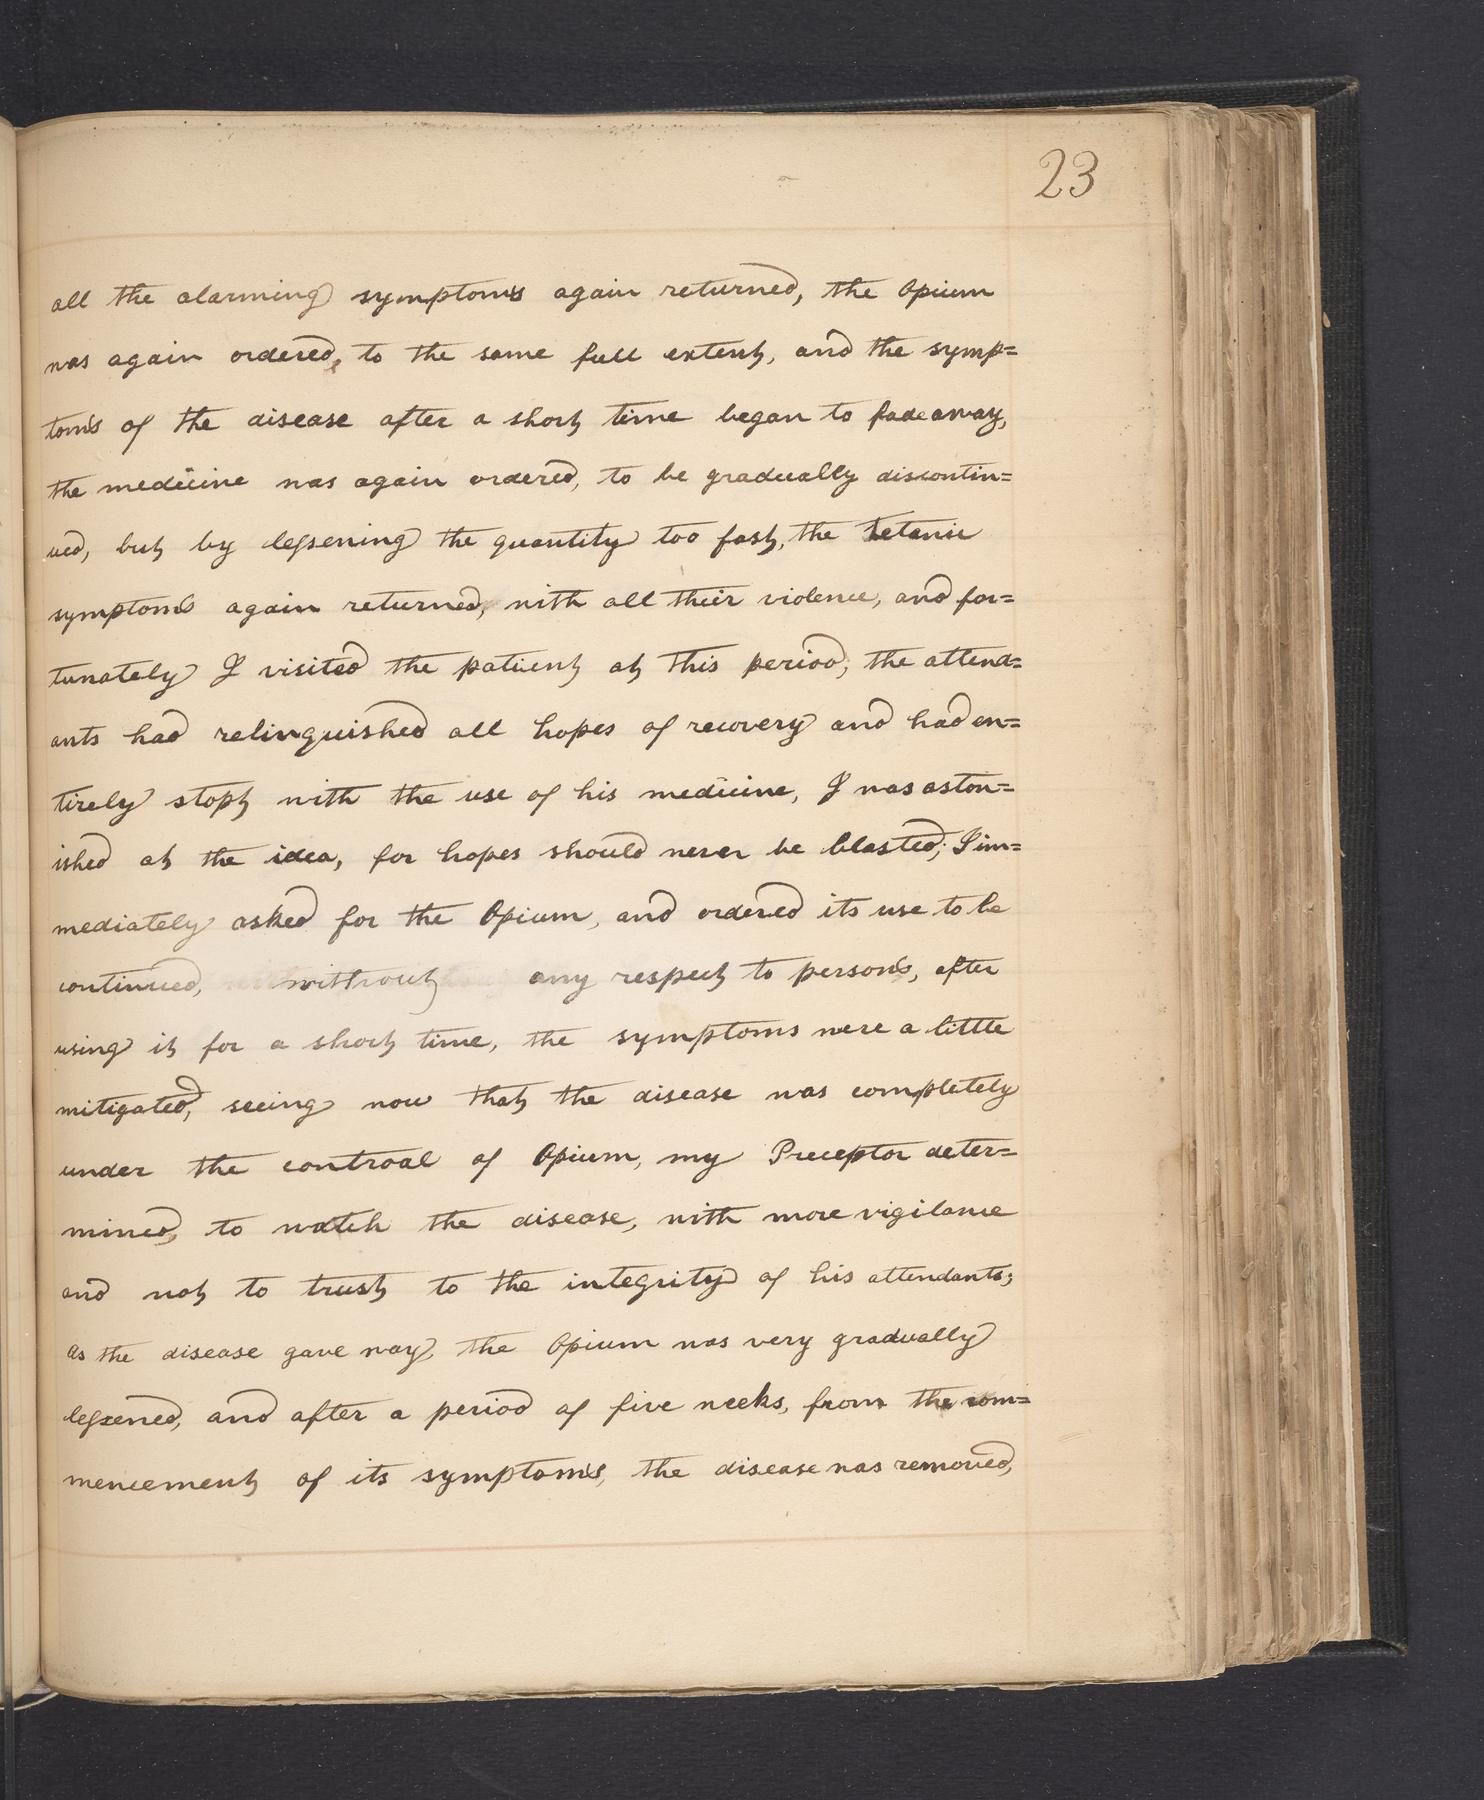 23
all the alarming symptoms again returned, the Opium
was again ordered, to the same full extent, and the symp=
toms of the disease after a short time began to fade away,
the medicine was again ordered, to be gradually discontin=
ued, but by lessening the quantity too fast, the tetanic
symptoms again returned, with all their violence, and for=
tunately I visited the patient at this period, the attend=
ants had relinquished all hopes of recovery and had en=
tirely stopt with the use of his medicine, I was aston=
ished at the idea, for hopes should never be blasted; I im=
mediately asked for the Opium, and ordered its use to be
continued, without any respect to persons, after
using it for a short time, the symptoms were a little
mitigated, seeing now that the disease was completely
under the controal of Opium, my Preceptor deter=
mined, to watch the disease, with more vigilance
and not to trust to the integrity of his attendants;
as the disease gave way, the Opium was very gradually
lessened, and after a period of five weeks, from the com=
mencement of its symptoms, the disease was removed,